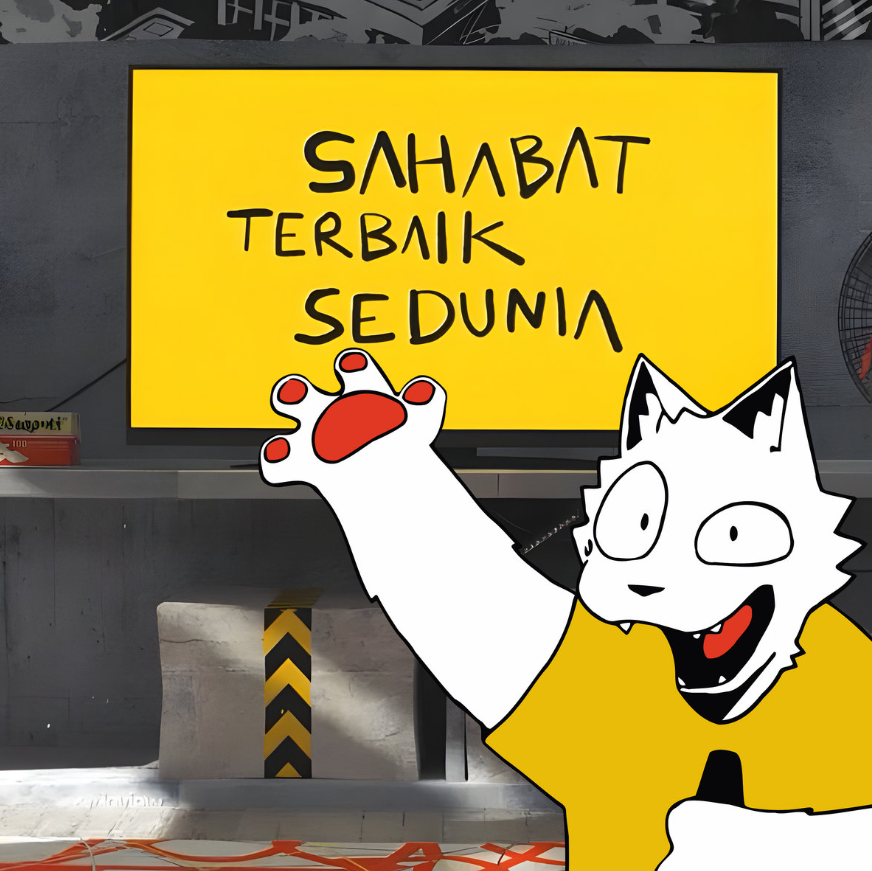 SAHABAT
TERBAIK
SEDUNIA
100